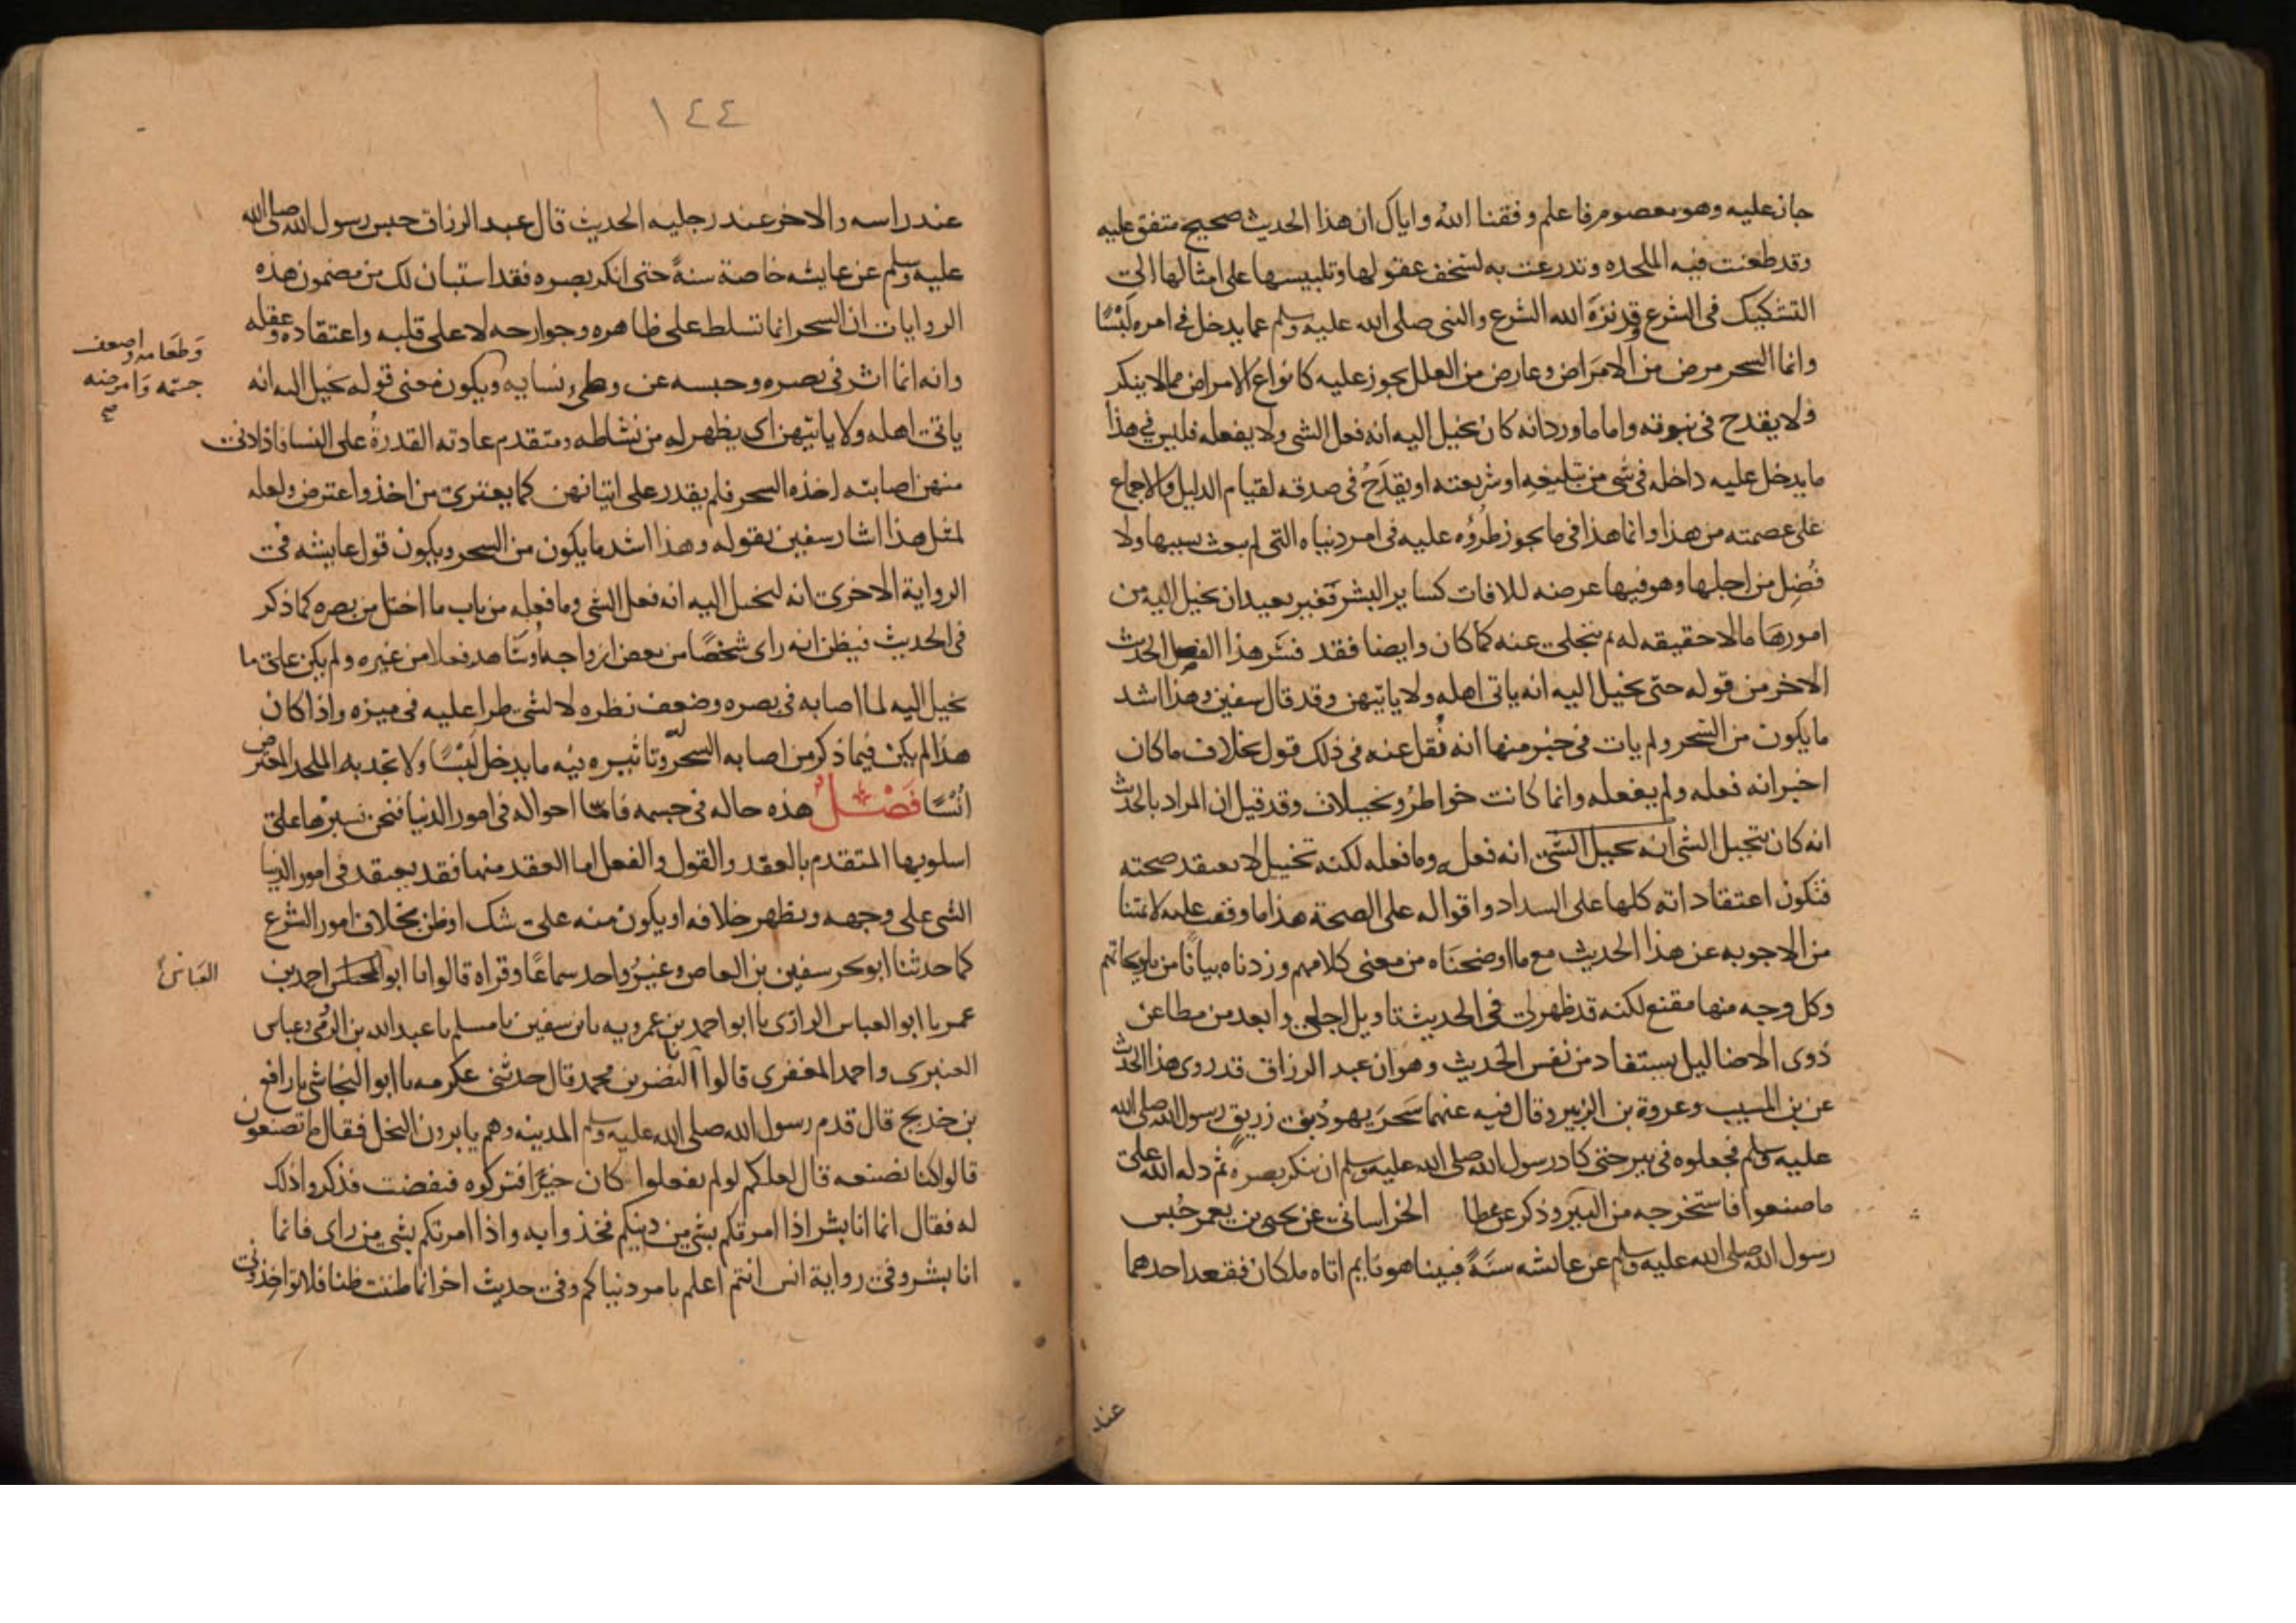 جاز عليه وهو معصوم فاعلم وفقنا الله واياك ان هذا الحديث صحيح متفق عليه
وقد طعنت فيه الملحده وتدرعت به لسخف عقولها وتلبيسها على امثالها الى
التشكيك فى الشرع وقد نزه الله الشرع والنبى صلى الله عليه وسلم عما يدخل فى امره لبسًا
وانما السحر مرض من الامراض وعارض من العلل يجوز عليه كانواع الامراض مما لا ينكر
ولا يقدح فى نبوته واما ما ورد انه كان يخيل اليه انه فعل الشى ولا يفعله فليس فى هذا
ما يدخل عليه داخله فى شى من تبليغه او شريعته او يقدح فى صدقه لقيام الدليل والاجماع
على عصمته من هذا وانما هذا فى ما يجوز طروه عليه فى امر دنياه التى لم يبعث بسببها ولا
فضل من اجلها وهو فيها عرضه للافات كساير البشر فغير بعيد ان يخيل اليه من
امورها ما لا حقيقه له ثم ينجلى عنه كما كان وايضا فقد فسر هذا الفصل الحديث
الاخر من قوله حتى يخيل اليه انه ياتى اهله ولا ياتيهن وقد قال سفين وهذا اشد
ما يكون من السحر ولم يات فى خبر منها انه نقل عنه فى ذلك قول بخلاف ما كان
اخبر انه فعله ولم يفعله وانما كانت خواطر وتخيلات وقد قيل ان المراد بالحديث
انه كان يتخيل الشى انه يخيل الشى انه فعله وما فعله لكنه تخييل لا يعتقد صحته
فتكون اعتقاداته كلها على السداد واقواله على الصحة هذا ما وقفت عليه لائمتنا
من الاجوبه عن هذا الحديث مع ما اوضحناه من معنى كلامهم وزدناه بيانًا من تلويحاتهم
وكل وجه منها مقنع لكنه قد ظهر لى فى الحديث تاويل اجلى وابعد من مطاعن
ذوى الاضاليل يستفاد من نفس الحديث وهو ان عبد الرزاق قد روى هذا الحديث
عن بن المسيب وعروة بن الزبير وقال فيه عنهما سحر يهود بنى زريق رسول الله صلى الله
عليه وسلم فجعلوه فى بير حتى كاد رسول الله صلى الله عليه وسلم ان ينكر بصره ثم دله الله على
ما صنعوا فاستخرجه من البير وذكر عن عطا الخراسانى عن يحيى بن يعمر حبس
رسول الله صلى الله عليه وسلم عن عائشه سنةً فبينا هو نايم اتاه ملكان فقعد احدهما
عند
١٤٤
عند راسه والاخر عند رجليه الحديث قال عبد الرزاق حبس رسول الله صلى الله
عليه وسلم عن عايشه خاصة سنةً حتى انكر بصره فقد استبان لك من مضمون هذه
الروايات ان السحر انما تسلط على ظاهره وجوارحه لا على قلبه واعتقاده وعقله
وانه انما اثر فى بصره وحبسه عن وطى نسايه ويكون معنى قوله يخيل اليه انه
وطعامه واضعف
جسمه وامرضه
صح
ياتى اهله ولا ياتيهن اى يظهر له من نشاطه ومتقدم عادته القدرة على النسا فاذا دنى
منهن اصابته اخذه السحر فلم يقدر على اتيانهن كما يعترى من اخذ واعترض ولعله
لمثل هذا اشار سفين بقوله وهذا اشد ما يكون من السحر ويكون قول عايشه فى
الرواية الاخرى انه ليخيل اليه انه فعل الشى وما فعله من باب ما اختل من بصره كما ذكر
فى الحديث فيظن انه راى شخصًا من بعض ازواجه او شاهد فعلا من غيره ولم يكن على ما
يخيل اليه لما اصابه فى بصره وضعف نظره لا لشى طرا عليه فى ميزه واذا كان
هذا لم يكن فيما ذكر من اصابه السحر له وتاثيره فيه ما يدخل لبسًا ولا يجد به الملحد المعترض
انسًا فصل هذه حاله فى جسمه فاما احواله فى امور الدنيا فنحن نسبرها على
اسلوبها المتقدم بالعقد والقول والفعل اما العقد منها فقد يعتقد فى امور الدنيا
الشى على وجهه ويظهر خلافه او يكون منه على شك او ظن بخلاف امور الشرع
كما حدثنا ابو بحر سفين بن العاص وغير واحد سماعًا وقراه قالوا نا ابو العباس احمد بن
العباس
عمر نا ابو العباس الرازى نا ابو احمد بن عمرويه نا بن سفين نا مسلم نا عبد الله بن الرومى وعباس
العنبرى واحمد المعقرى قالوا نا النضر بن محمد قال حدثنى عكرمه نا ابو النجاشى نا رافع
بن خديج قال قدم رسول الله صلى الله عليه وسلم المدينه وهم يابرون النخل فقال ما تصنعون
قالوا كنا نصنعه قال لعلكم لو لم تفعلوا كان خيرًا فتركوه فنفضت فذكروا ذلك
له فقال انما انا بشر اذا امرتكم بشى من دينكم فخذوا به واذا امرتكم بشى من راى فانما
انا بشر وفى رواية انس انتم اعلم بامر دنياكم وفى حديث اخر انما ظننت ظنا فلا تواخذونى